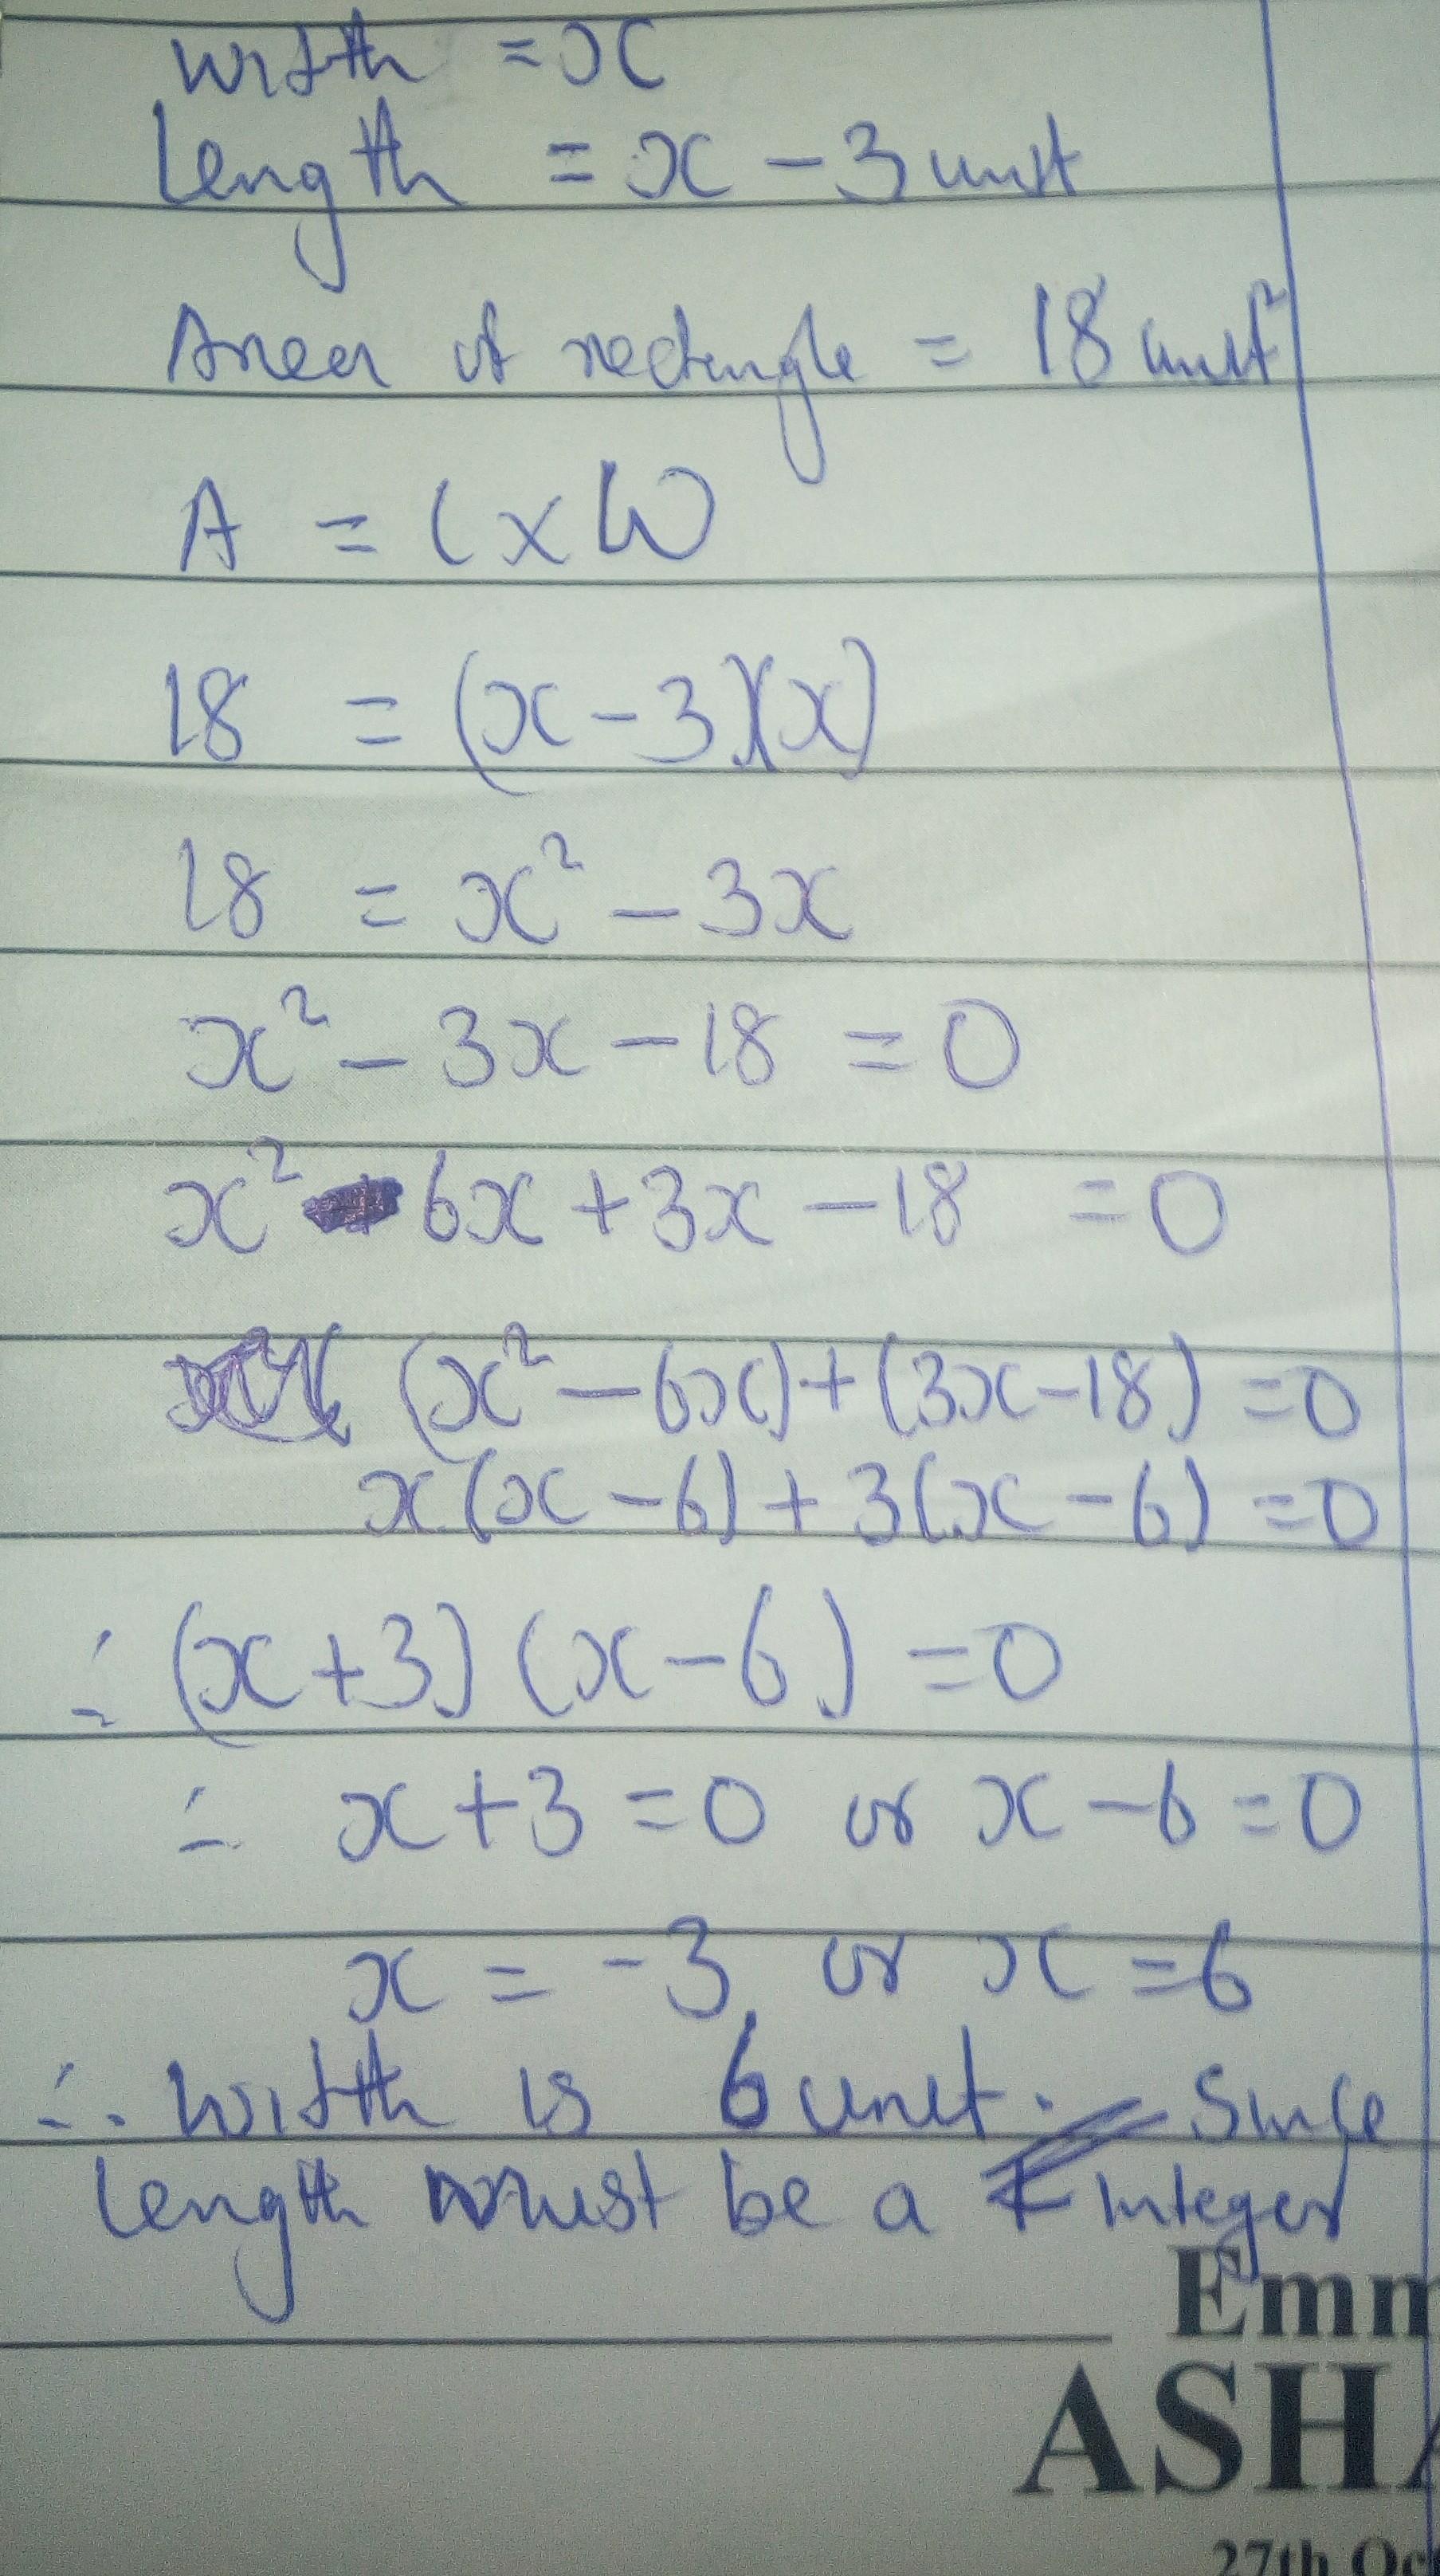 width = x
length = x - 3 unit
Area of rectangle = 18 unit²
A = l x W
18 = (x - 3)(x)
18 = x² - 3x
x² - 3x - 18 = 0
x² - 6x + 3x - 18 = 0
(x² - 6x) + (3x - 18) = 0
x(x - 6) + 3(x - 6) = 0
∴ (x + 3) (x - 6) = 0
∴ x + 3 = 0 or x - 6 = 0
x = -3 or x = 6
∴ width is 6 unit. Since
length must be a integer
Emm
ASHA
27th Oc